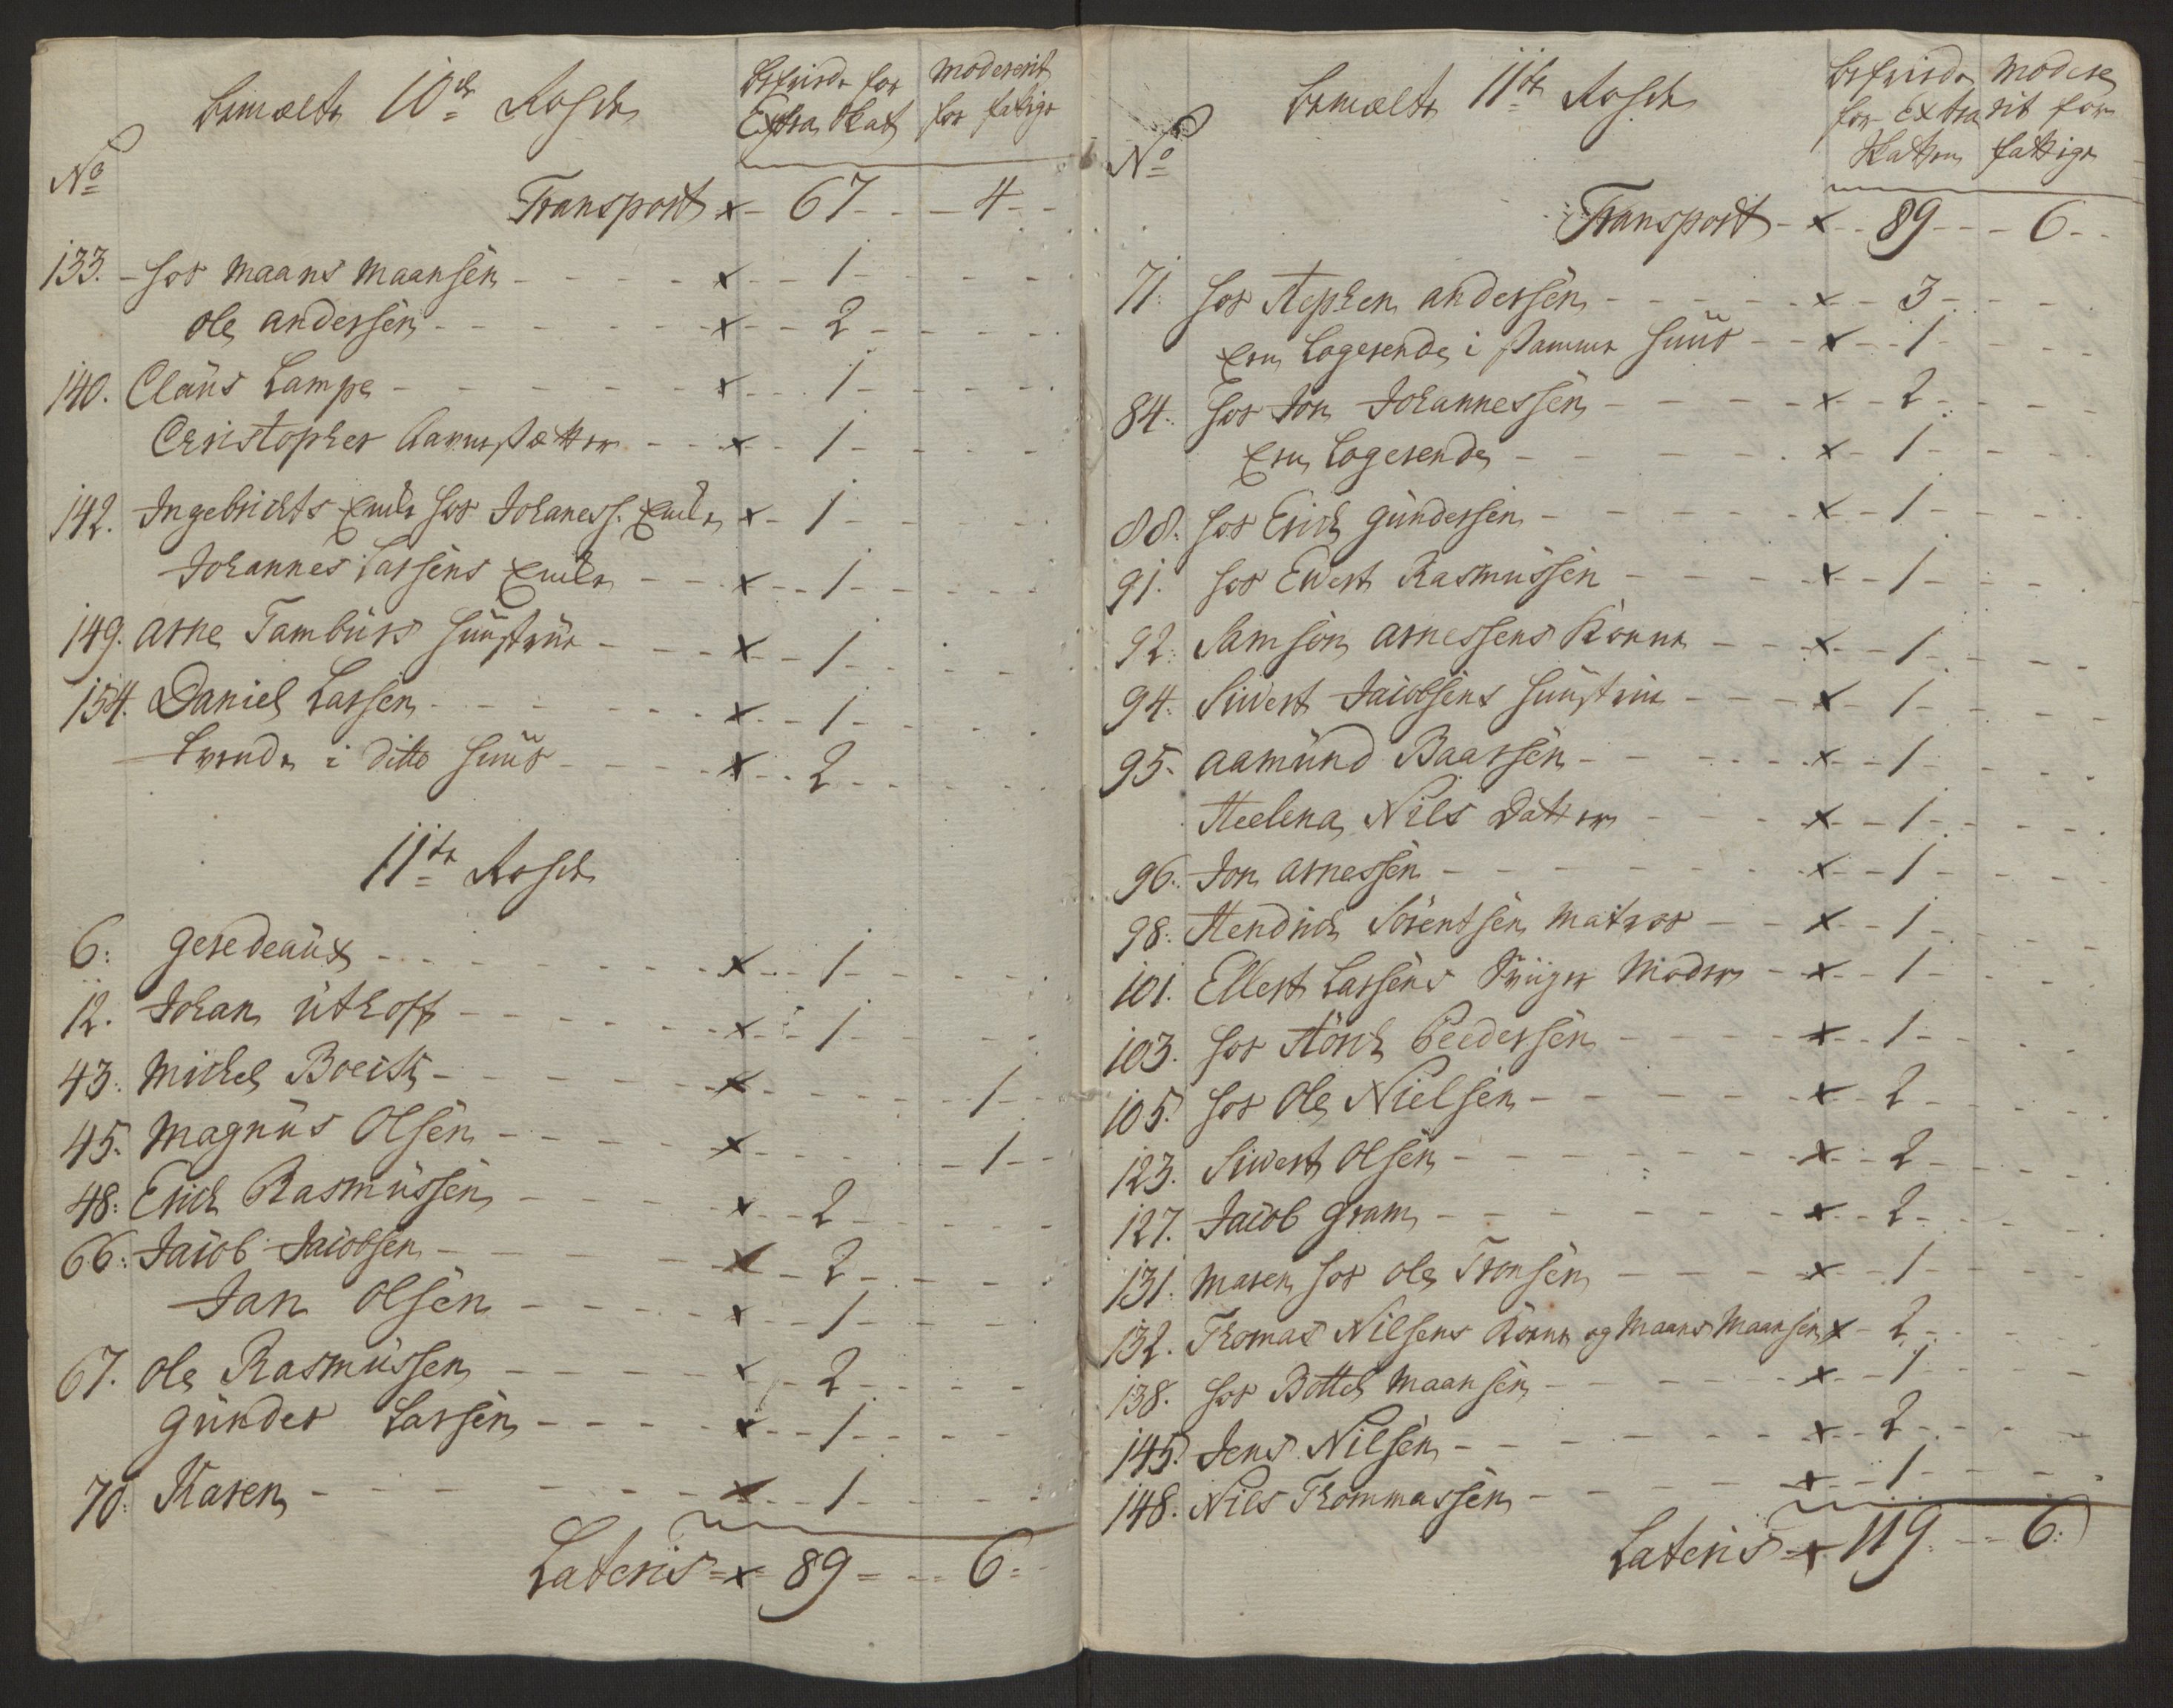 bemælte 10de Rohde
befriede for Extra Skat
Moderert for fatige
No
Transport x 67 - 4
133. hos Maans Maansen x 1
Ole Andersen x 2
140. Claus Lampe x 1
Christopher x 1
142. Ingebrichts Encke hos Johaness. Encke x 1
Johannes Larsens Encke x 1
149. Arne Tamburs Huustrue x 1
154. Daniel Larsen x 1
i ditto Huus x 2
11te Rohde
6: Geredeaux x 1
12. Johan Uthoff x 1
43. Michel Boeisk x - 1
45. Magnus Olsen x - 1
48: Erich Rasmussen x 2
66: Jacob Jacobsen x 2
Jan Olsen x 1
67. Ole Rasmussen x 2
Gunder Larsen x 1
70: Karen x 1
Lateris x 89 - 6
bemælte 11te Rohde
befriede for Extra Skatten
Moderе rit for fattige
No
Transport x 89 - 6
71: hos Stephen Andersen x 3
Een Logerende i samme Huus x 1
84. hos Jon Johannessen x 2
Een Logerende x 1
88: hos Erich Gundersen x 1
91. hos Ewert Rasmussen x 1
92: Samson Arnessens Konne x 1
94. Siwert Jacobsens Huustrue x 1
95. Aamund Baarsen x 1
Heelena Nils Datter x 1
96. Jon Arnessen x 1
98: Hendrich Sörentsen Matros x 1
101. Ellert Larsens Sviger Moder x 1
103. hos Störch Peedersen x 1
105. hos Ole Nielsen x 2
123. Siwert Olsen x 2
127. Jacob Gram x 2
131. Maren hos Ole Tronsen x 1
132. Thomas Nilsens Konne og Maans Maansen x 2
138. hos Bottel Maansen x 1
145. Jens Nilsen x 2
148. Nils Thommassen x 1
Lateris x 119 - 6: